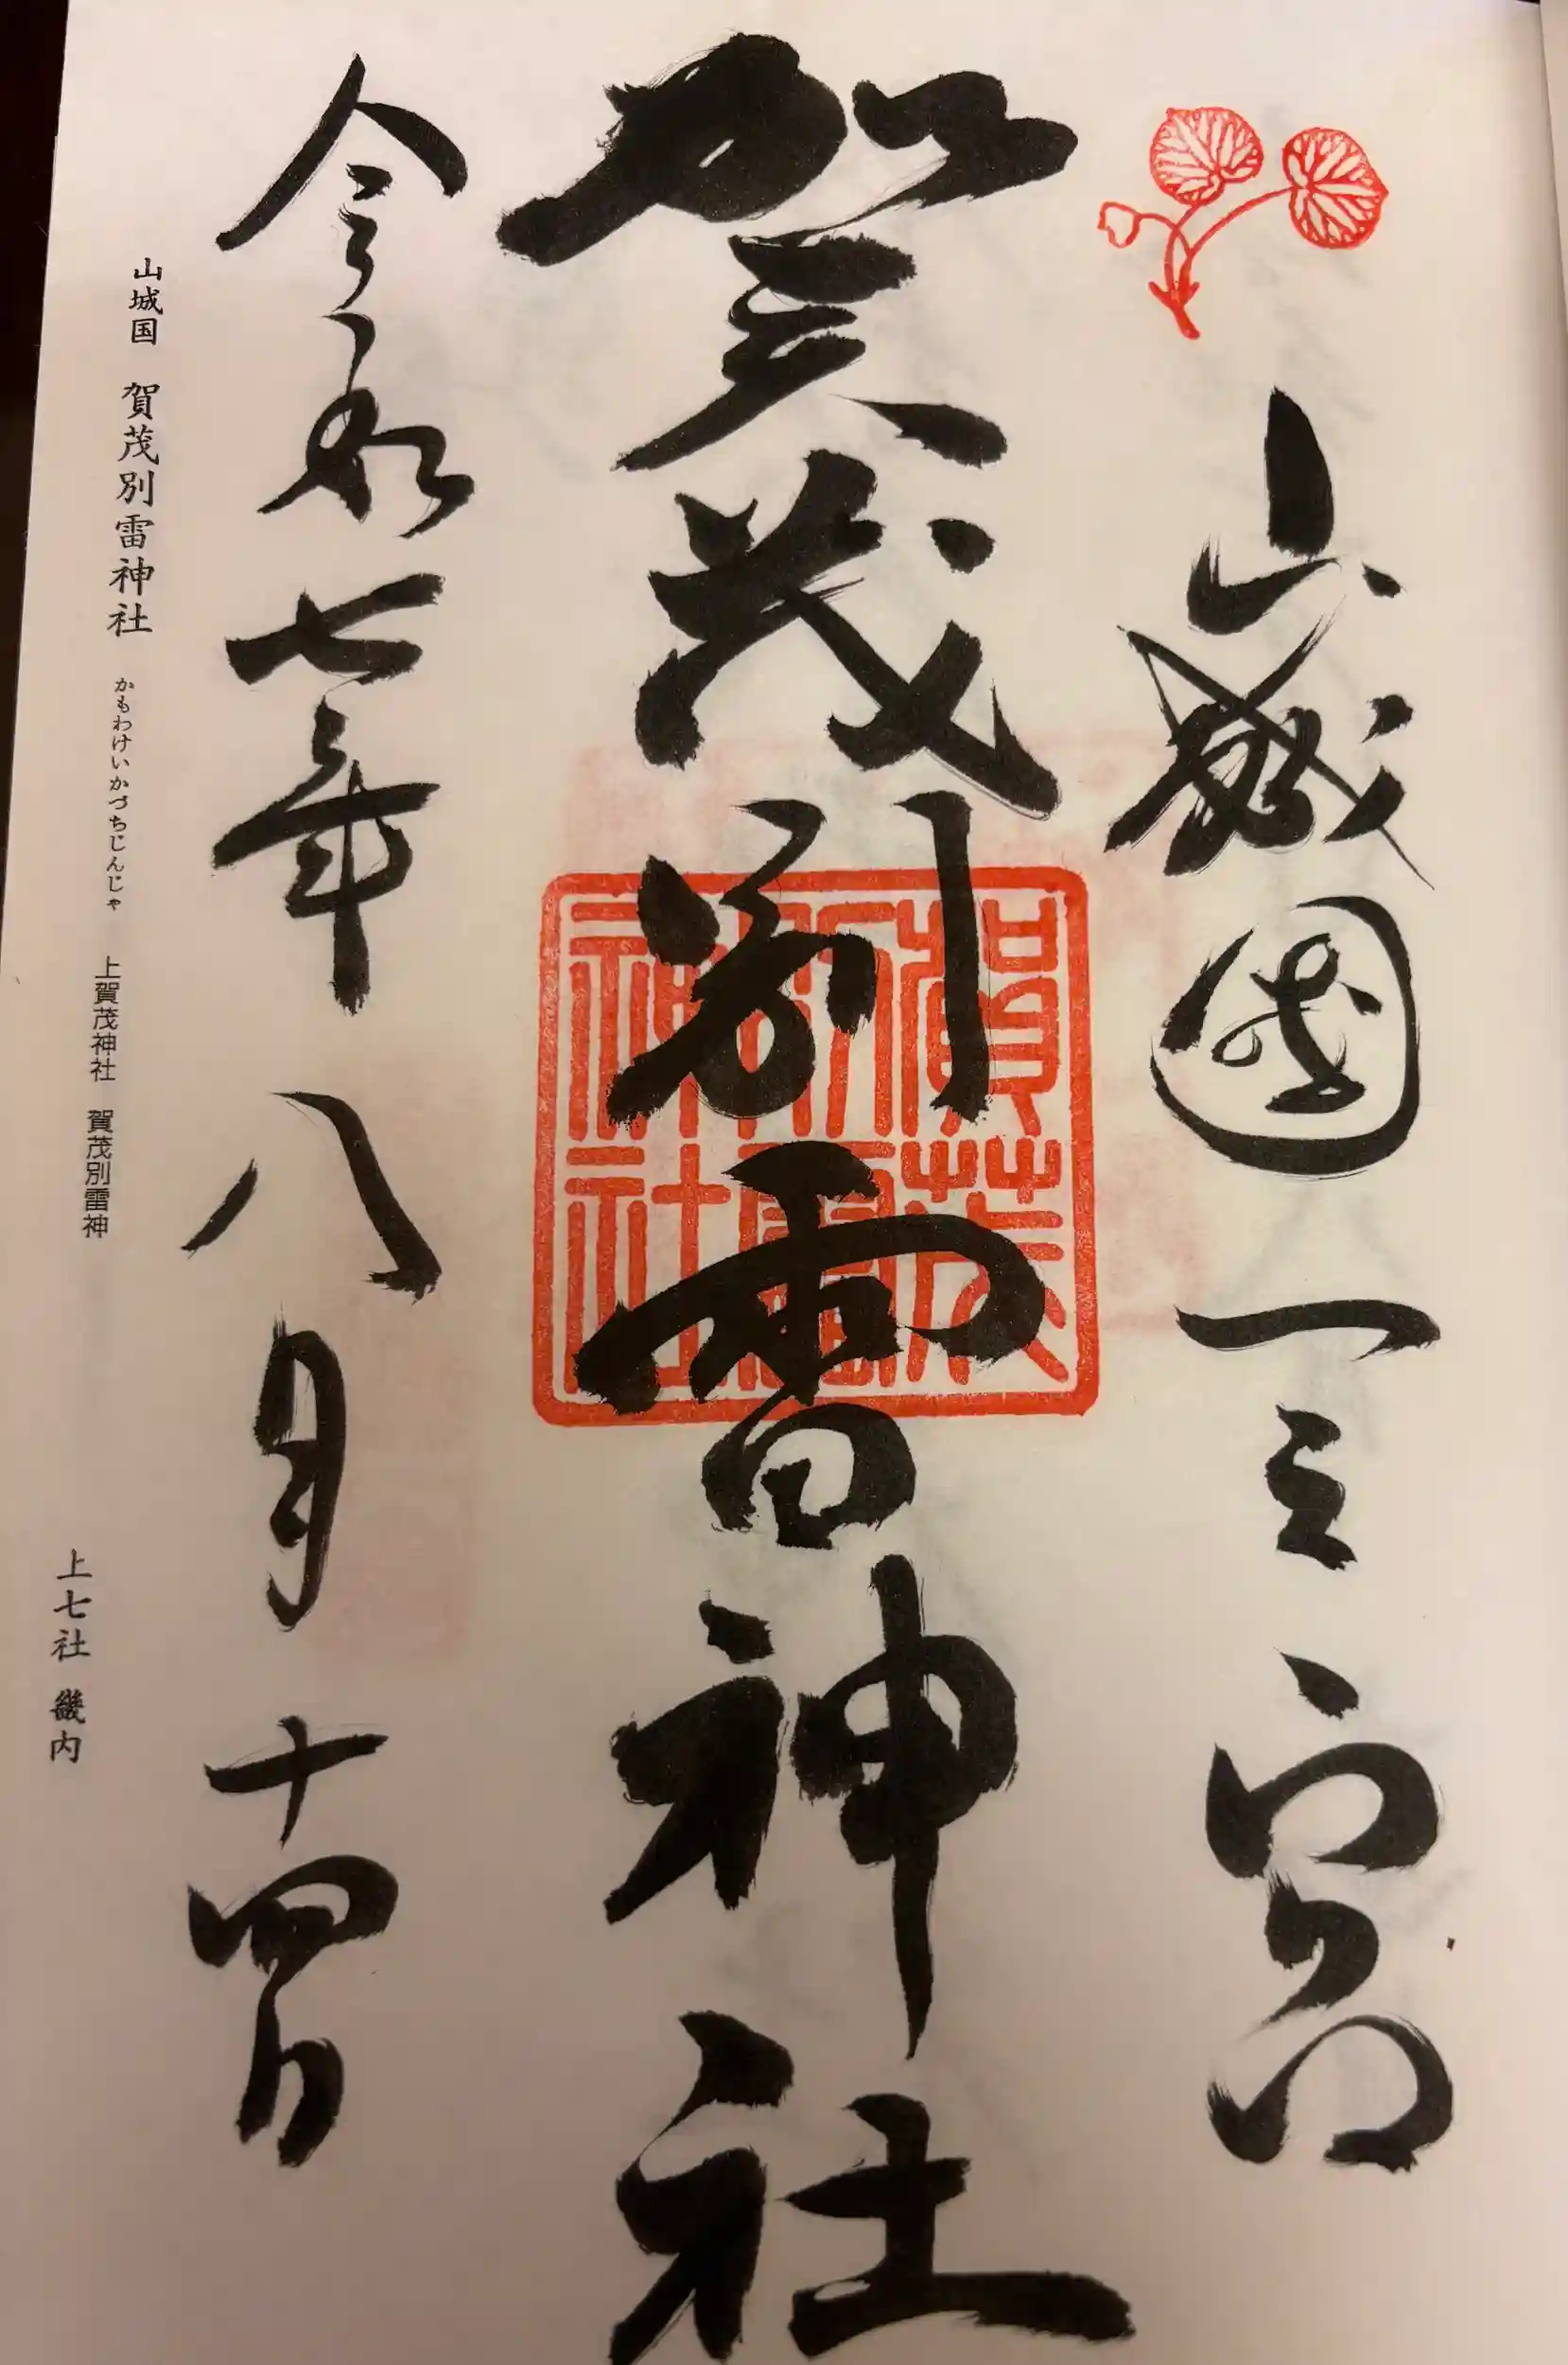 山城國一之宮
賀茂別雷神社
令和七年八月十四日
賀茂
別雷
神社
山城国 賀茂別雷神社 かもわけいかづちじんじゃ 上賀茂神社 賀茂別雷神
上七社 畿内